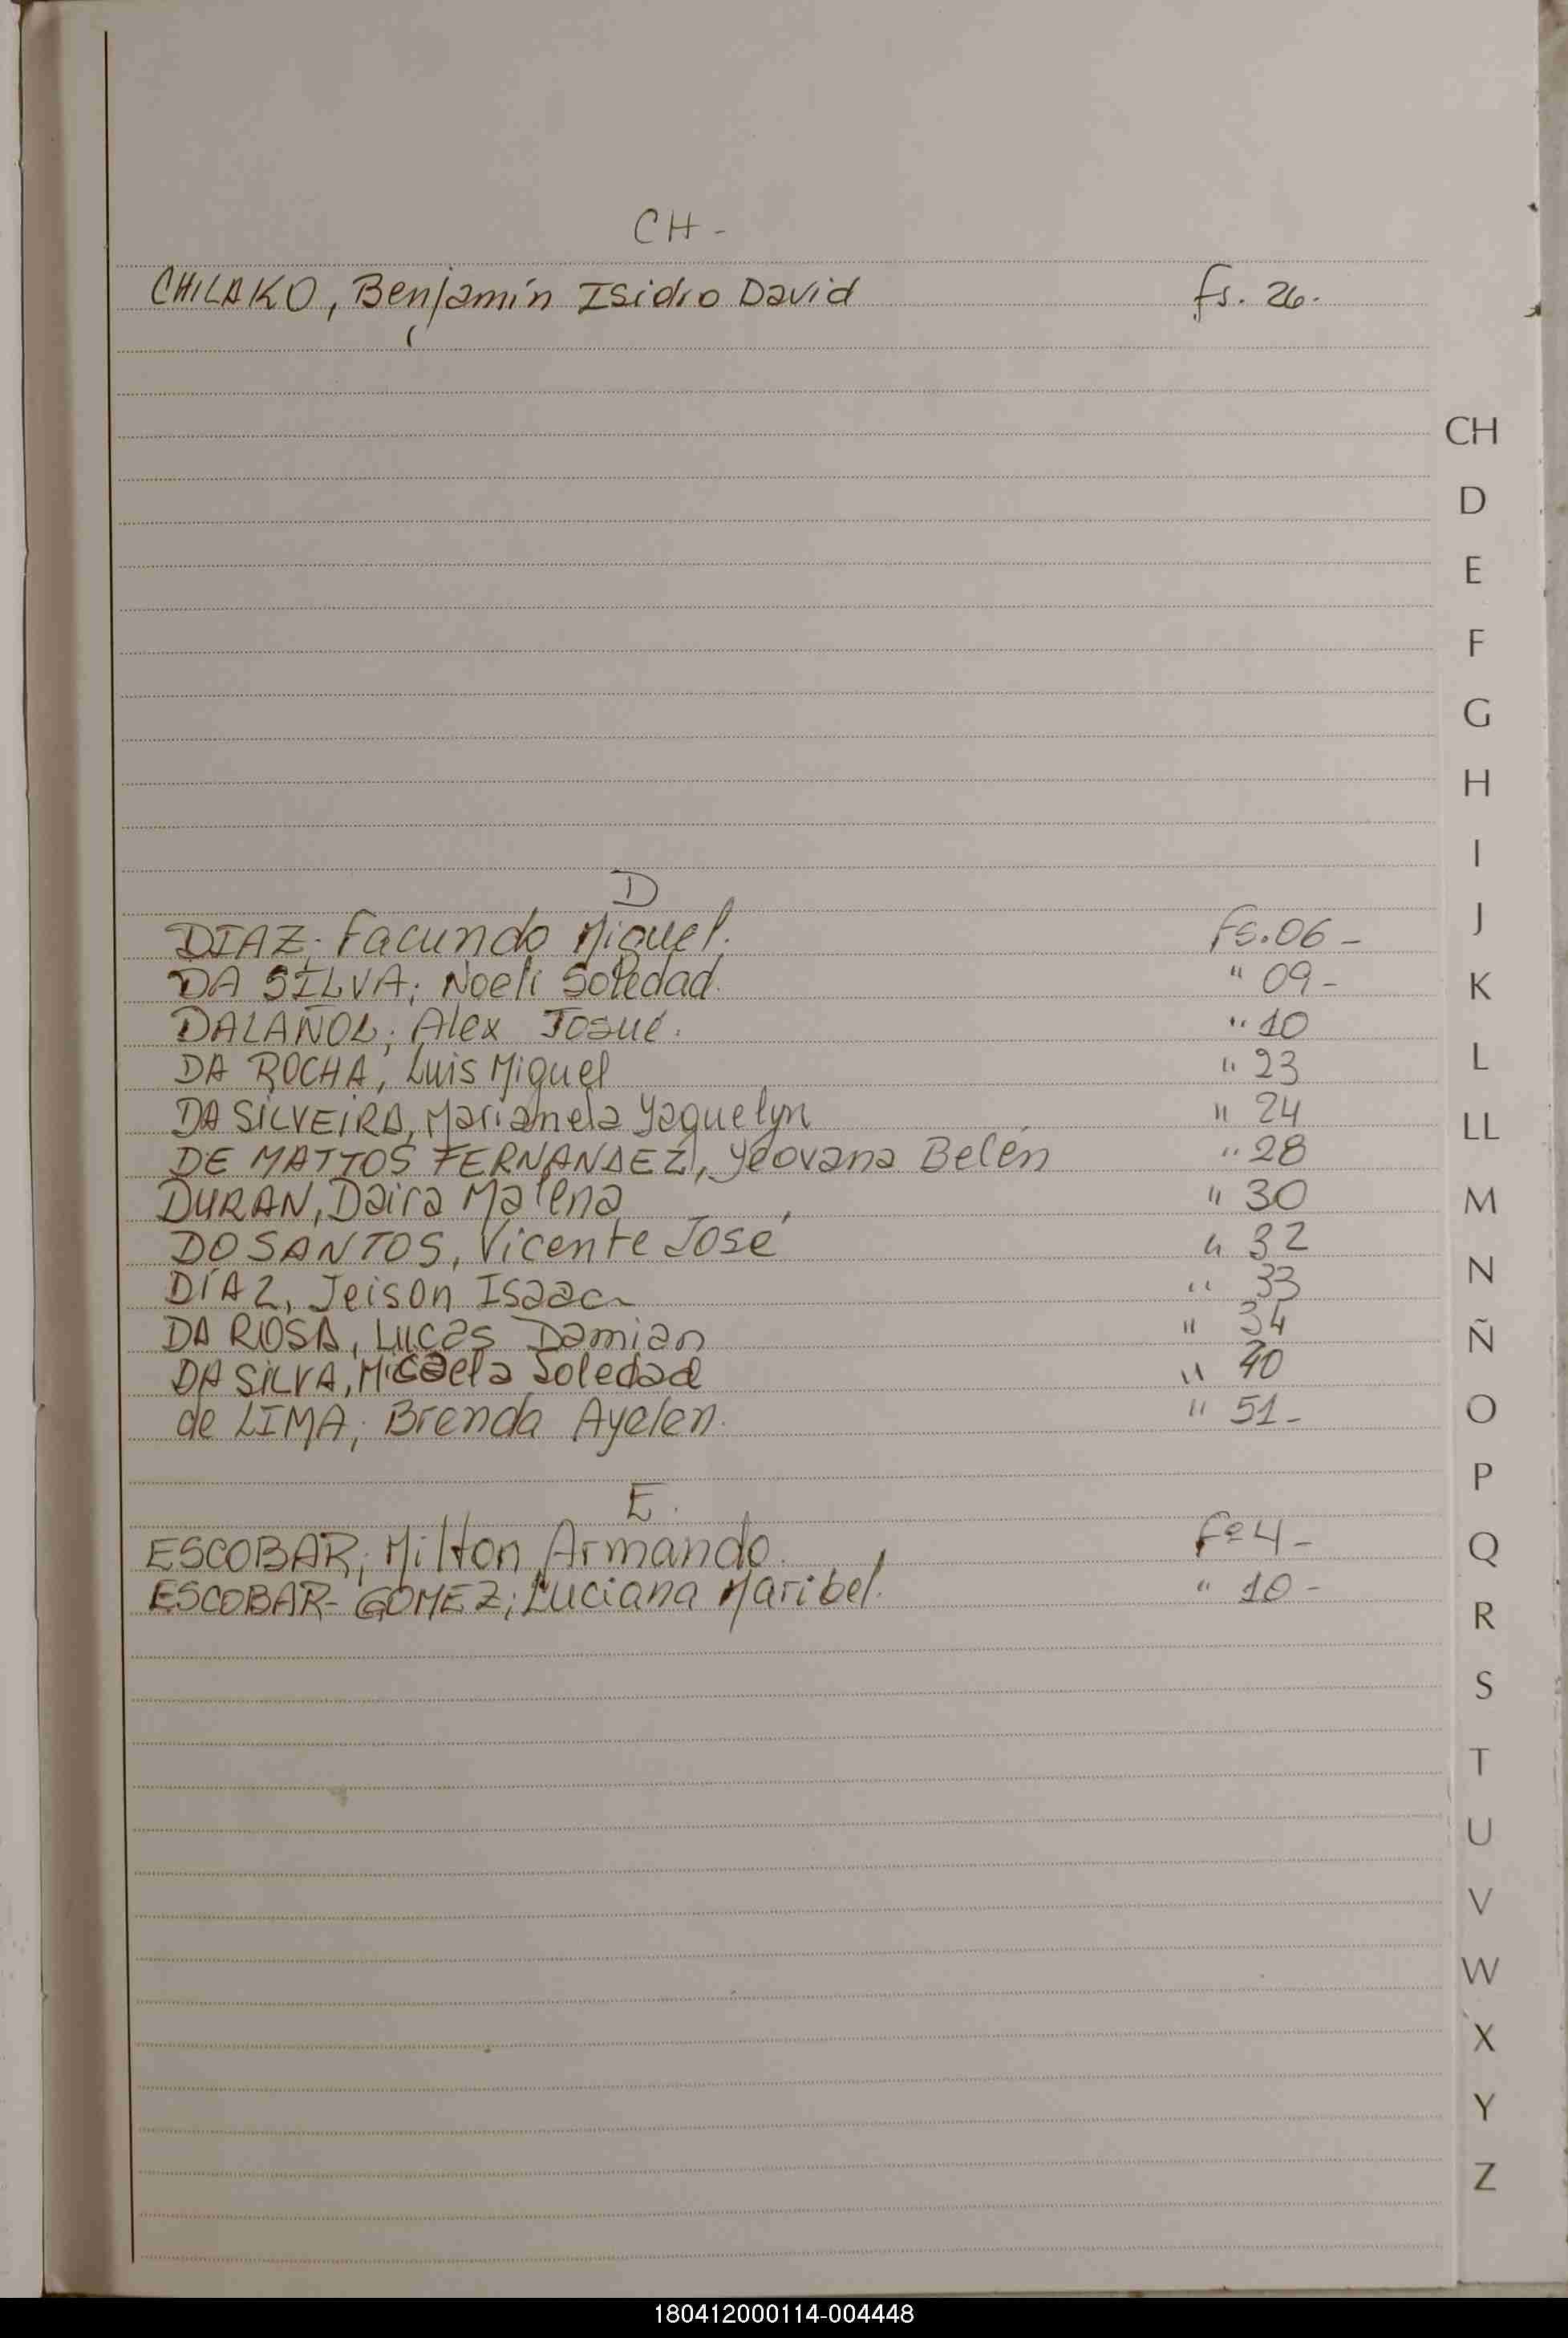 CH -
CHILAKO, Benjamín Isidro David fs. 26.
D
DIAZ; Facundo Miguel. Fs. 06 -
DA SILVA; Noeli Soledad. " 09 -
DALAÑOL; Alex Josué. " 10
DA ROCHA, Luis Miguel " 23
DA SILVEIRA, Marianela Yaquelyn " 24
DE MATTOS FERNANDEZ, Yeovana Belén " 28
DURAN, Daira Malena " 30
DO SANTOS, Vicente José " 32
DÍAZ, Jeison Isaac " 33
DA ROSA, Lucas Damian " 34
DA SILVA, Micaela Soledad " 40
de LIMA; Brenda Ayelen. " 51 -
E.
ESCOBAR; Milton Armando. Fº 4 -
ESCOBAR - GOMEZ; Luciana Maribel. " 10 -
CH
D
E
F
G
H
I
J
K
L
LL
M
N
Ñ
O
P
Q
R
S
T
U
V
W
X
Y
Z
180412000114-004448